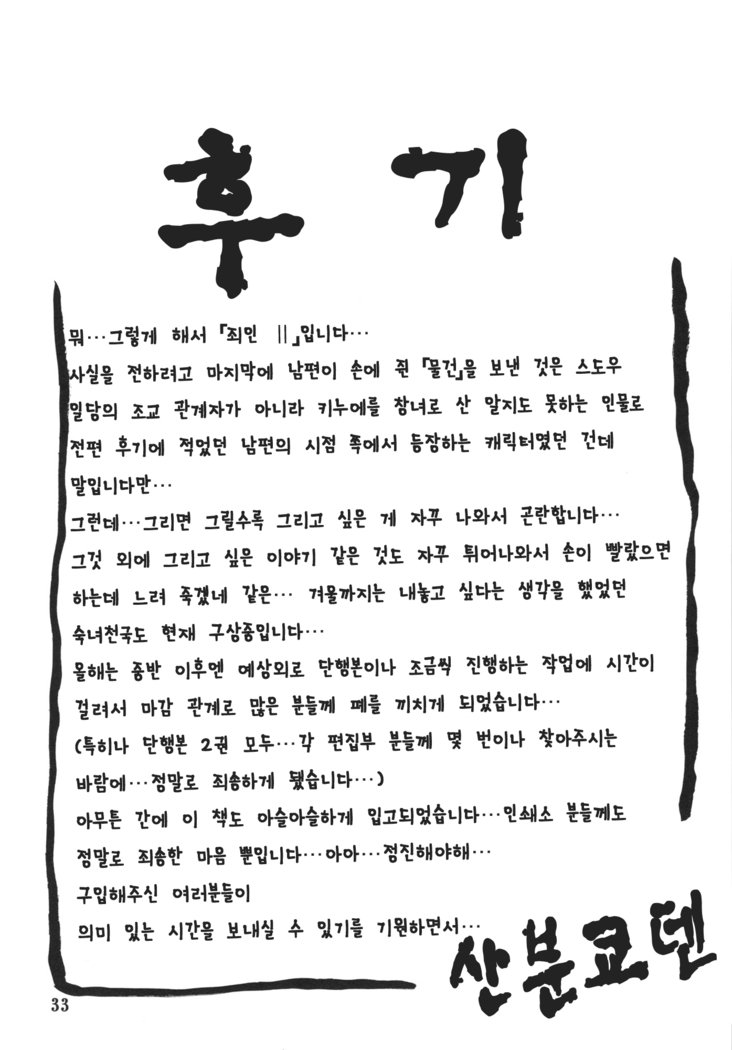 후기
뭐…그렇게 해서 『죄인 Ⅱ』입니다…
사실을 전하려고 마지막에 남편이 손에 쥔 『물건』을 보낸 것은 스도우
일당의 조교 관계자가 아니라 키누에를 창녀로 산 알지도 못하는 인물로
전편 후기에 적었던 남편의 시점 쪽에서 등장하는 캐릭터였던 건데
말입니다만…
그런데…그리면 그릴수록 그리고 싶은 게 자꾸 나와서 곤란합니다…
그것 외에 그리고 싶은 이야기 같은 것도 자꾸 튀어나와서 손이 빨랐으면
하는데 느려 죽겠네 같은… 겨울까지는 내놓고 싶다는 생각을 했었던
숙녀천국도 현재 구상중입니다…
올해는 중반 이후엔 예상외로 단행본이나 조금씩 진행하는 작업에 시간이
걸려서 마감 관계로 많은 분들께 폐를 끼치게 되었습니다…
(특히나 단행본 2권 모두…각 편집부 분들께 몇 번이나 찾아주시는
바람에…정말로 죄송하게 됐습니다…)
아무튼 간에 이 책도 아슬아슬하게 입고되었습니다…인쇄소 분들께도
정말로 죄송한 마음 뿐입니다…아아…정진해야해…
구입해주신 여러분들이
의미 있는 시간을 보내실 수 있기를 기원하면서…
산분쿄덴
33